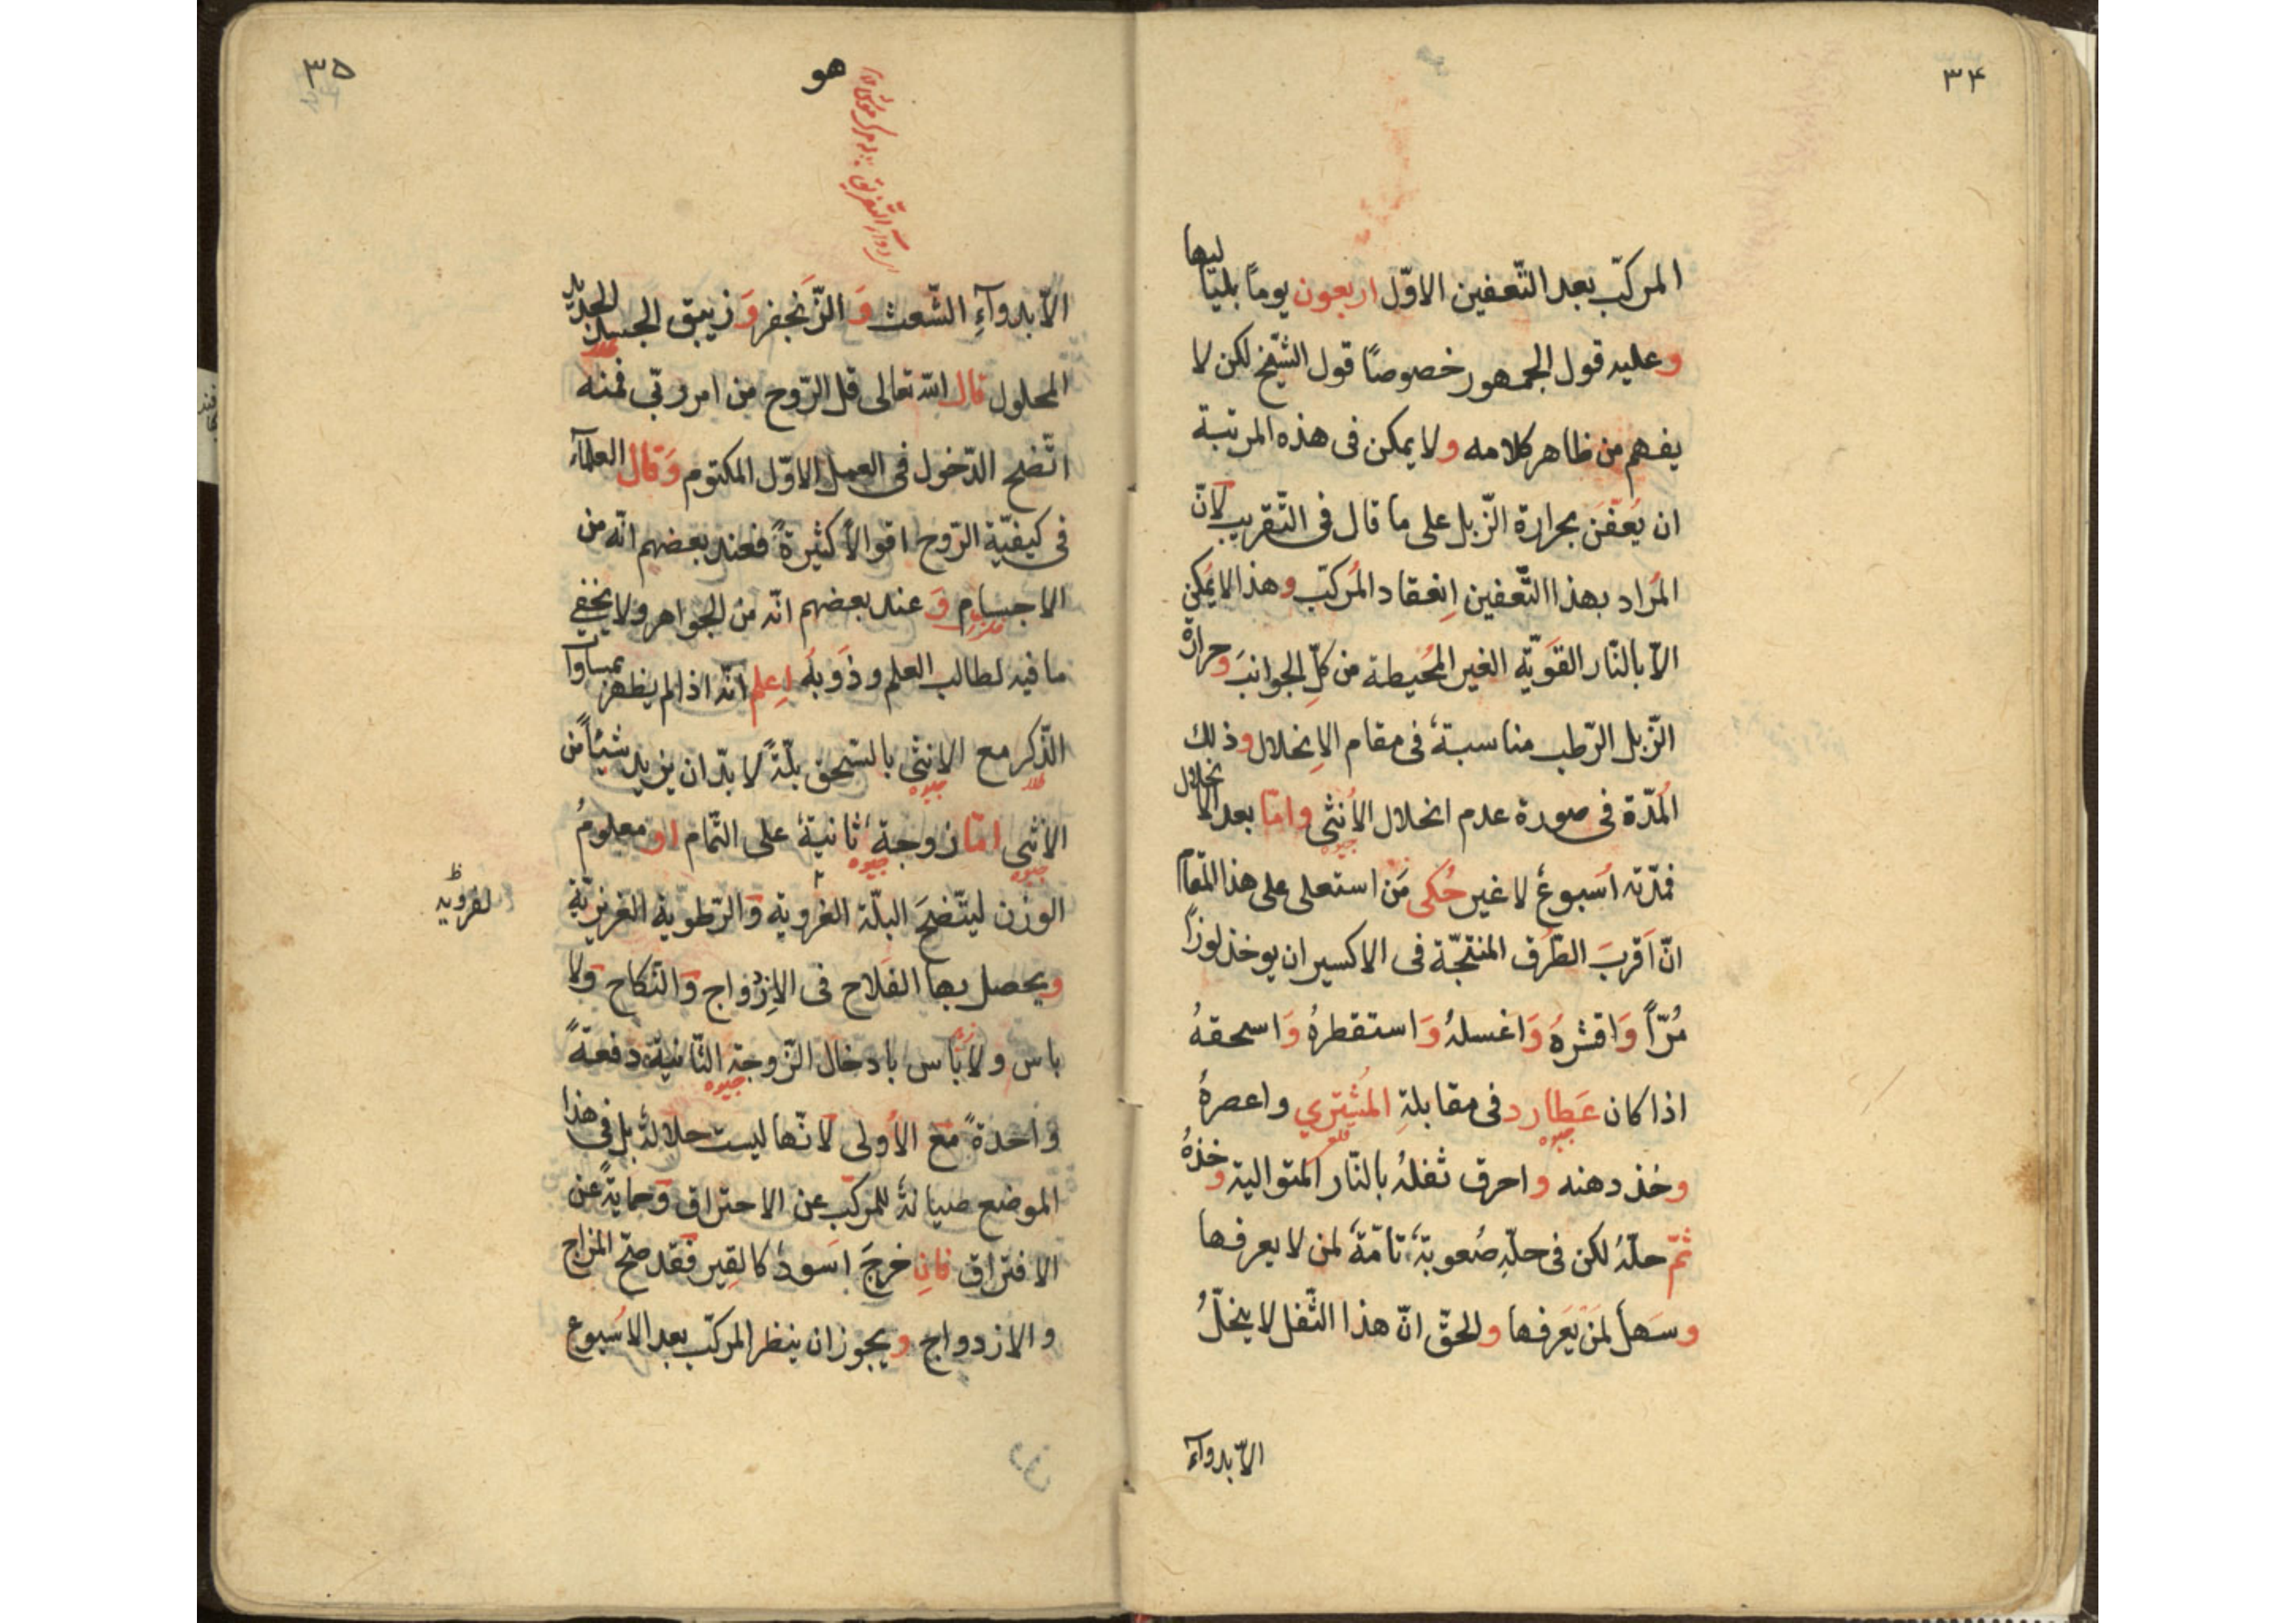 ٣۴
المركّب بعد التّعفين الاوّل اربعون يوماً بلياليها
وعليه قول الجمهور خصوصاً قول الشّيخ لكن لا
يفهم من ظاهر كلامه ولا يمكن فى هذه المرتبة
ان يُعَفَّن بحرارة الزّبل على ما قال فى التّقريب لانّ
المُراد بهذا التّعفين اِنعقاد المُركّب وهذا لا يُمكن
الّا بالنّار القَوَيّة الغير المُحيطة من كلّ الجوانبَ وحرارة
الزّبل الرّطب مناسبةٌ فى مقام الاِنحلال وذلك
المُدّة فى صورة عدم انحلال الاُنثى وامّا بعد الانحلال
جيوه
فمدّته اُسبوعٌ لا غير حُكى مَن استعلى على هذا المَقام
انّ اَقربَ الطّرُق المنتجّة فى الاكسير ان يوخذ لوزاً
مُرّاً وَاقشرهُ وَاغسلهُ وَاستقطرهُ وَاسحقهُ
اذا كان عَطارد فى مقابلةِ المُشِتري واعصرهُ
جيوه قلع
وخذ دهنه واحرق ثفلهُ بالنّار المتوالية وخذهُ
ثمّ حلّهُ لكن فى حلّهِ صُعوبةٌ تامّةٌ لمن لا يعرفها
وسَهلٌ لمَنْ يَعَرفها والحقّ انّ هذا الثّفل لا ينحلّ
الّا بدوآء
٣۵
هو
الّا بدوآءِ الشّعث وَ الزّنَجفر وَ زيبق الجسد الجديد
المحلول قال الله تعالى قل الرّوح من امر ربّى فمنه
اتّضح الدّخول فى العمل الاوّل المكتوم وَقال العلمآء
فى كيفيّة الرّوح اقوالاً كثيرةً فعند بعضهم انّه من
الاجسام وَ عند بعضهم انّه من الجواهر ولا يخفى
ما فيه لطالب العلم وذَوَبهُ اِعلم انّه اذا لم يظهر بمساوات
الذّكر مع الانثى بالسّحق بلّةً لا بدّ ان يزيد شيئاً من
جيوه
الاُنثى امّا زوجةٌ ثانيةٌ على التّمام او معلومُ
جيوه جيوه
الوزن ليتّضحَ البلّة الغروية وَالرّطوبة الغريزيّة
لغرويه ظ
ويحصل بها الفلاح فى الاِزدواج وَالنّكاح وَلا
باس ولا بَاس بادخال الزّوجة الثّانية دفعةً
جيوه
واحدةً مع الاُولى لانّها ليست حلالةٌ بل فى هذا
الموضع صيانةٌ للمركّب عن الاحتراق وَحمايةً عن
الافتراق فانِ خرجَ اسَودُ كالقِير فقد صحّ المزاج
والازدواج ويجوز ان ينظر المركّب بعد الاسُبوع